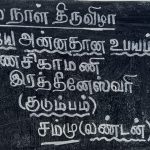 நாள் திருவிழா
அன்னதான உபயம்
ணசிகாமணி
இரத்தினேஸ்வரி
(குடும்பம்)
சமமு(லண்டன்)